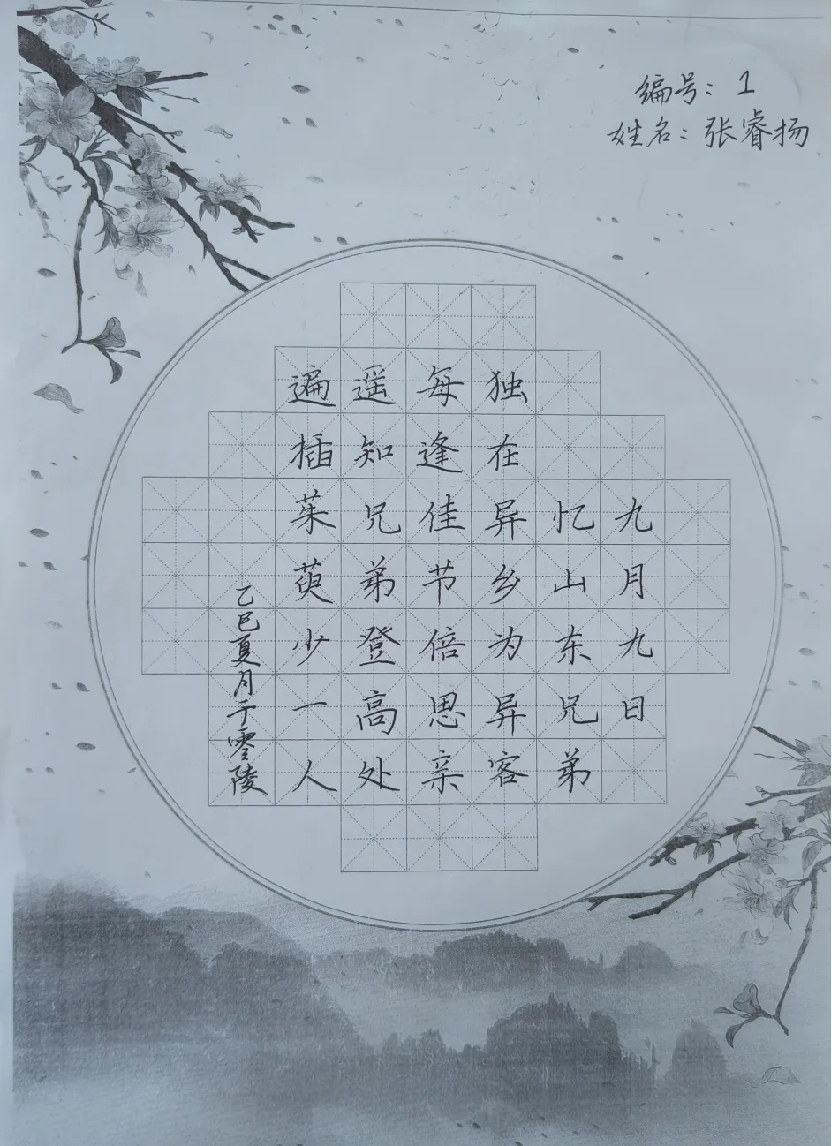 编号：1
姓名：张睿扬
九月九日
忆山东兄弟
独在异乡为异客
每逢佳节倍思亲
遥知兄弟登高处
遍插茱萸少一人
乙巳夏月于零陵